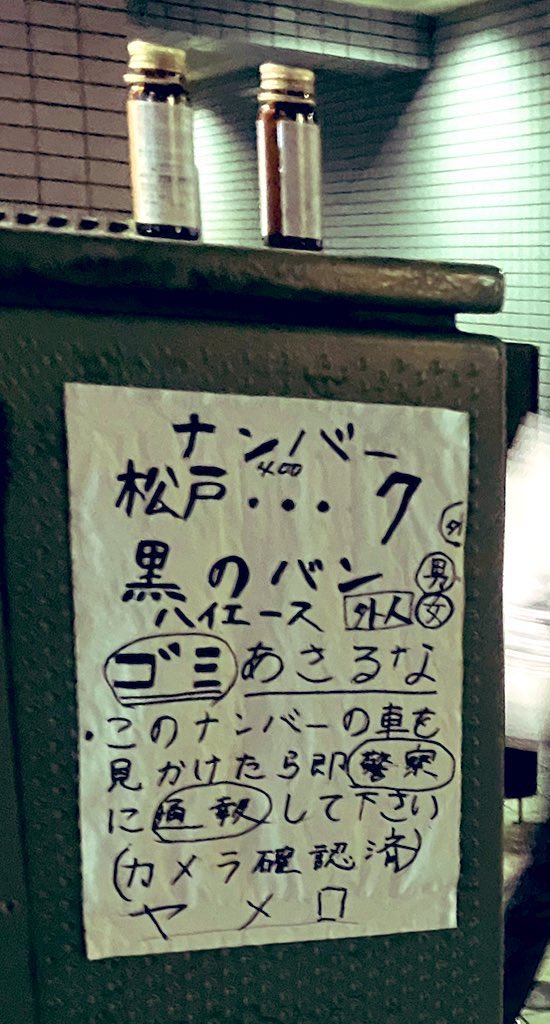 ナンバー
400
松戸・・・7
黒のバン 男
ハイエース 外人 女
ゴミあさるな
・このナンバーの車を
見かけたら即警察
に通報して下さい
(カメラ確認済)
ヤメロ